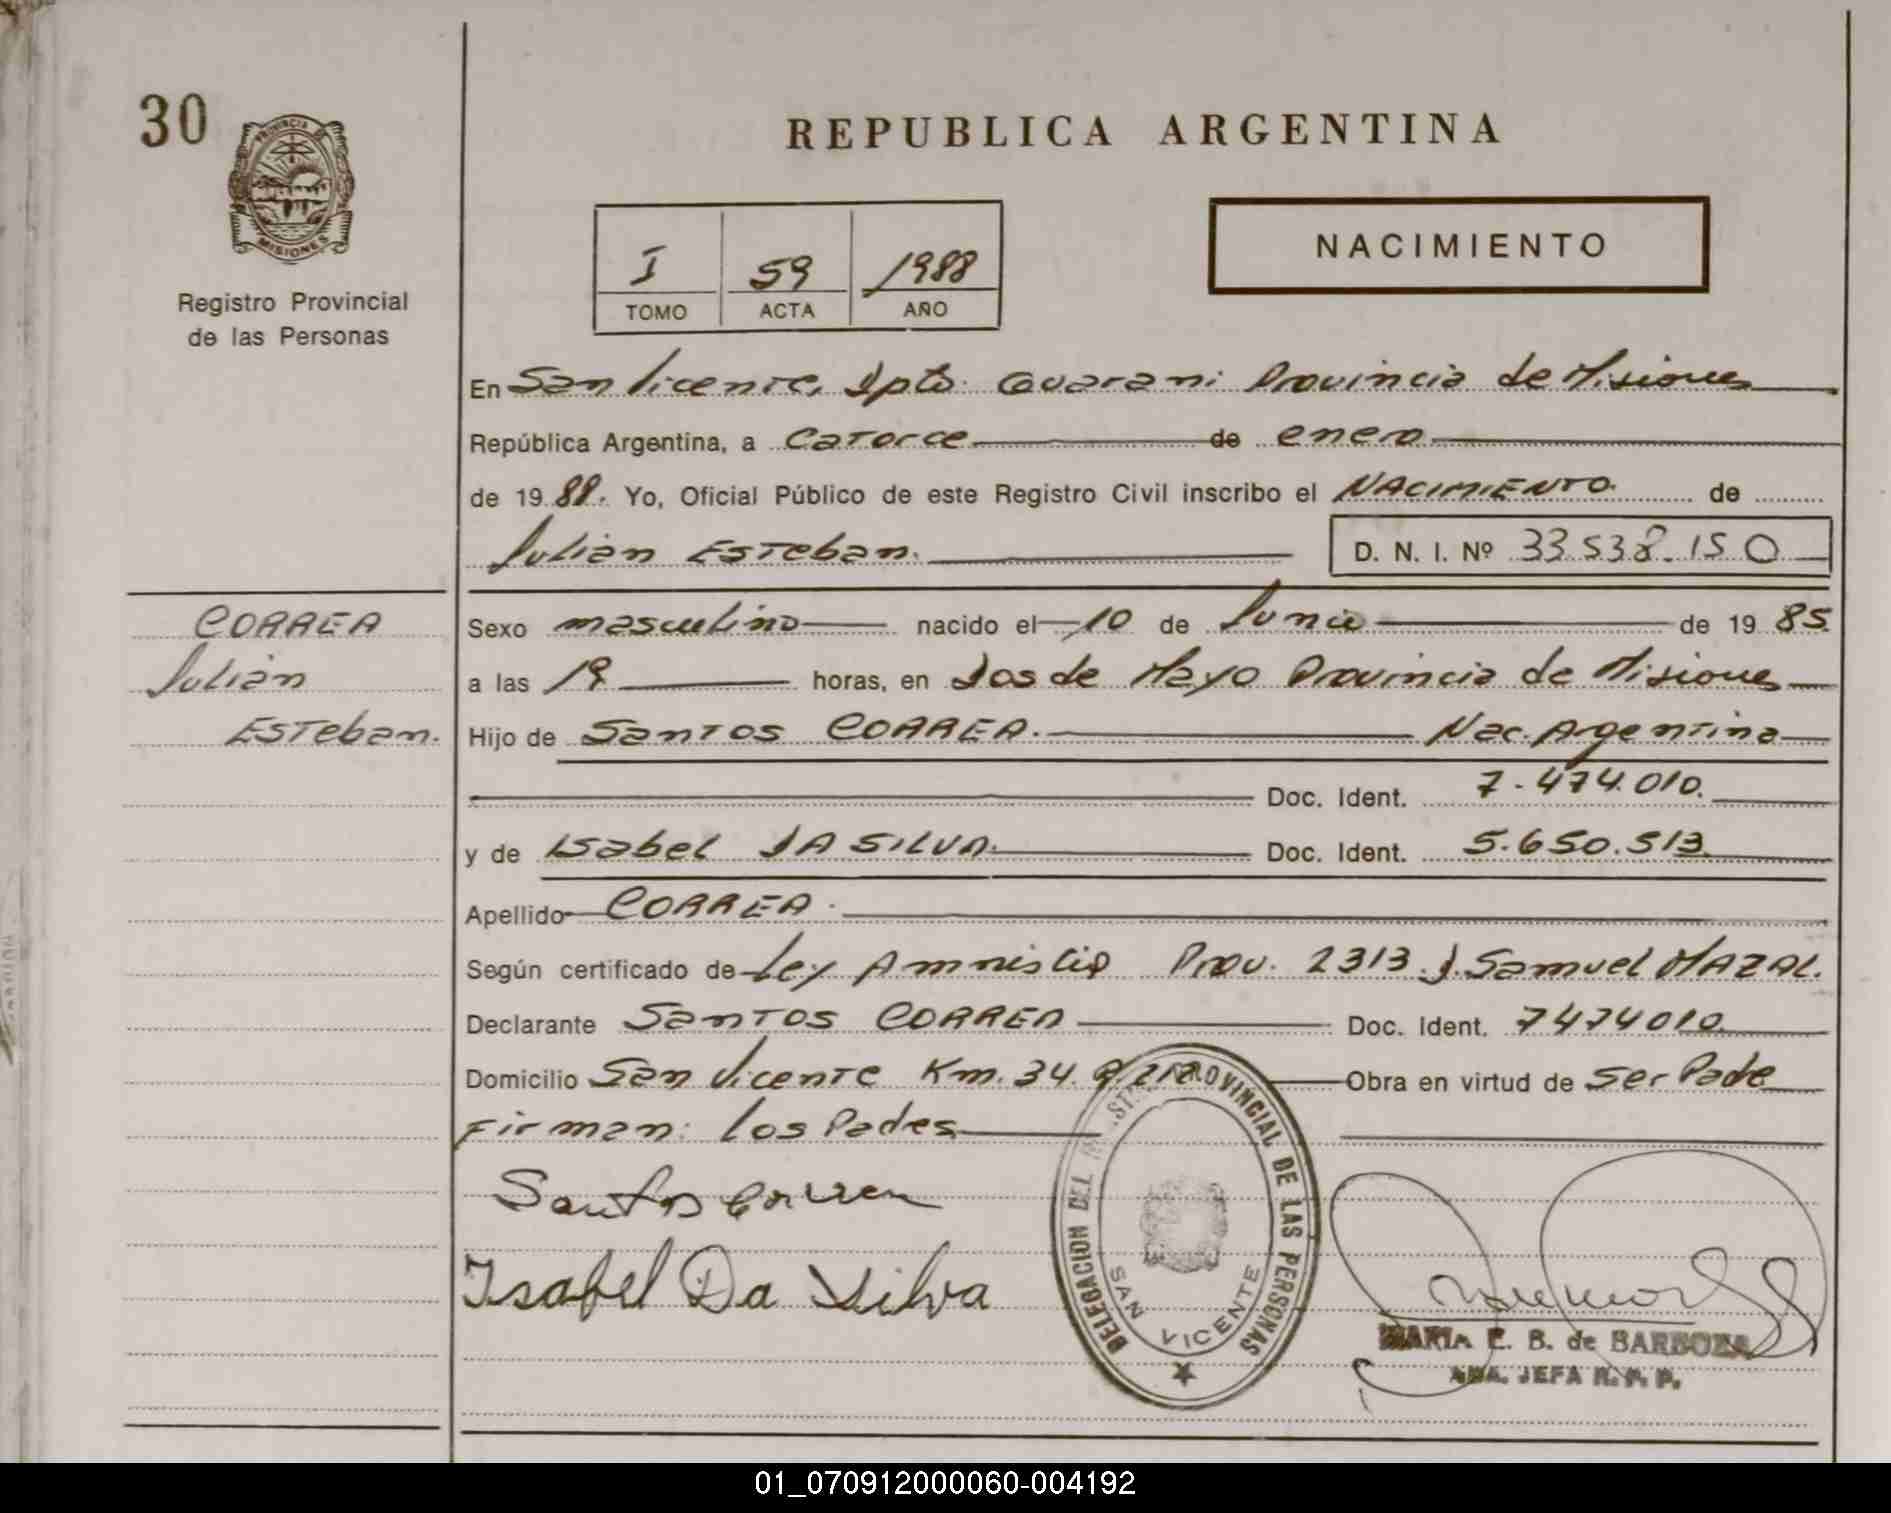 30
PROVINCIA DE
MISIONES
Registro Provincial
de las Personas
REPUBLICA ARGENTINA
I 59 1988
TOMO ACTA AÑO
NACIMIENTO
En San Vicente, Dpto. Guarani Provincia de Misiones
República Argentina, a Catorce de enero
de 1988. Yo, Oficial Público de este Registro Civil inscribo el NACIMIENTO de
Julian Esteban.
D. N. I. Nº 33.538.150
CORREA
Julian
Esteban.
Sexo masculino nacido el 10 de Junio de 1985.
a las 19 horas, en Dos de Mayo Provincia de Misiones
Hijo de Santos CORREA. Nac. Argentina
Doc. Ident. 7.474.010.
y de Isabel DA SILVA. Doc. Ident. 5.650.513
Apellido CORREA.
Según certificado de Ley Amnistia Prov. 2313. J. Samuel MAZAL.
Declarante Santos CORREA Doc. Ident. 7474010
Domicilio San Vicente Km. 34. Obra en virtud de ser Padre
Firman: los Padres
Santos Correa
Isabel Da Silva
DELEGACION DEL REGISTRO PROVINCIAL DE LAS PERSONAS
SAN VICENTE
MARIA E. B. de BARBOZA
JEFA R. P. P.
01_070912000060-004192